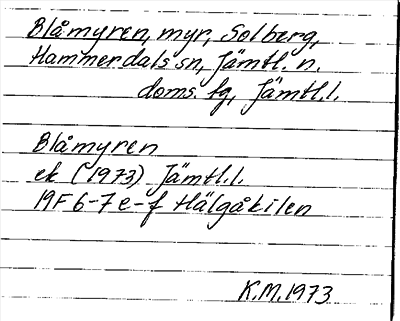 Blåmyren, myr, Solberg,
Hammerdals sn, Jämtl. n.
doms. fg, Jämtl.l.
Blåmyren
ek (1973) Jämtl.l.
19F 6-7 e-f Hälgåkilen
K.M.1973